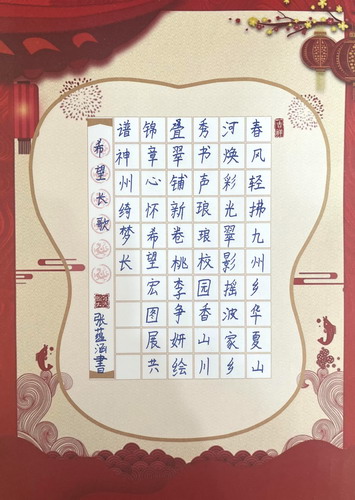 春风轻拂九州乡华夏山
河焕彩光翠影摇波家乡
秀书声琅琅校园香山川
叠翠铺新卷桃李争妍绘
锦章心怀希望宏图展共
谱神州绮梦长
希望长歌
张蕴涵書